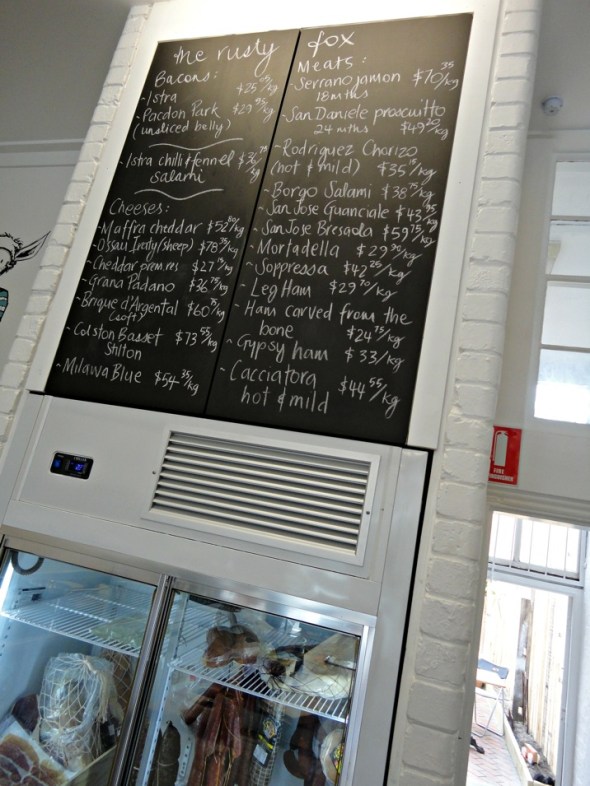 the rusty fox
Bacons:
- Istra $25 05/kg
- Pacdon Park $29 95/kg
(unsliced belly)
- Istra chilli & fennel $36 75/kg
salami
Cheeses:
- Maffra cheddar $52 80/kg
- Ossau Iraty (sheep) $78 75/kg
- Cheddar prem. res $27 15/kg
- Grana Padano $36 75/kg
- Brique d'Argental $60 75/kg
(soft)
- Colston Basset $73 55/kg
Stilton
- Milawa Blue $54 35/kg
Meats:
Serrano jamon $70 35/kg
18 mths
- San Daniele proscuitto
24 mths $49 50/kg
- Rodriguez Chorizo
(hot & mild) $35 15/kg
- Borgo Salami $38 75/kg
- San Jose Guanciale $43 95/kg
- San Jose Bresaola $59 75/kg
- Mortadella $29 90/kg
- Soppressa $42 25/kg
- Leg Ham $29 70/kg
- Ham carved from the
bone $24 75/kg
- Gypsy ham $33/kg
- Cacciatora $44 55/kg
hot & mild
FIRE
EXTINGUISHER